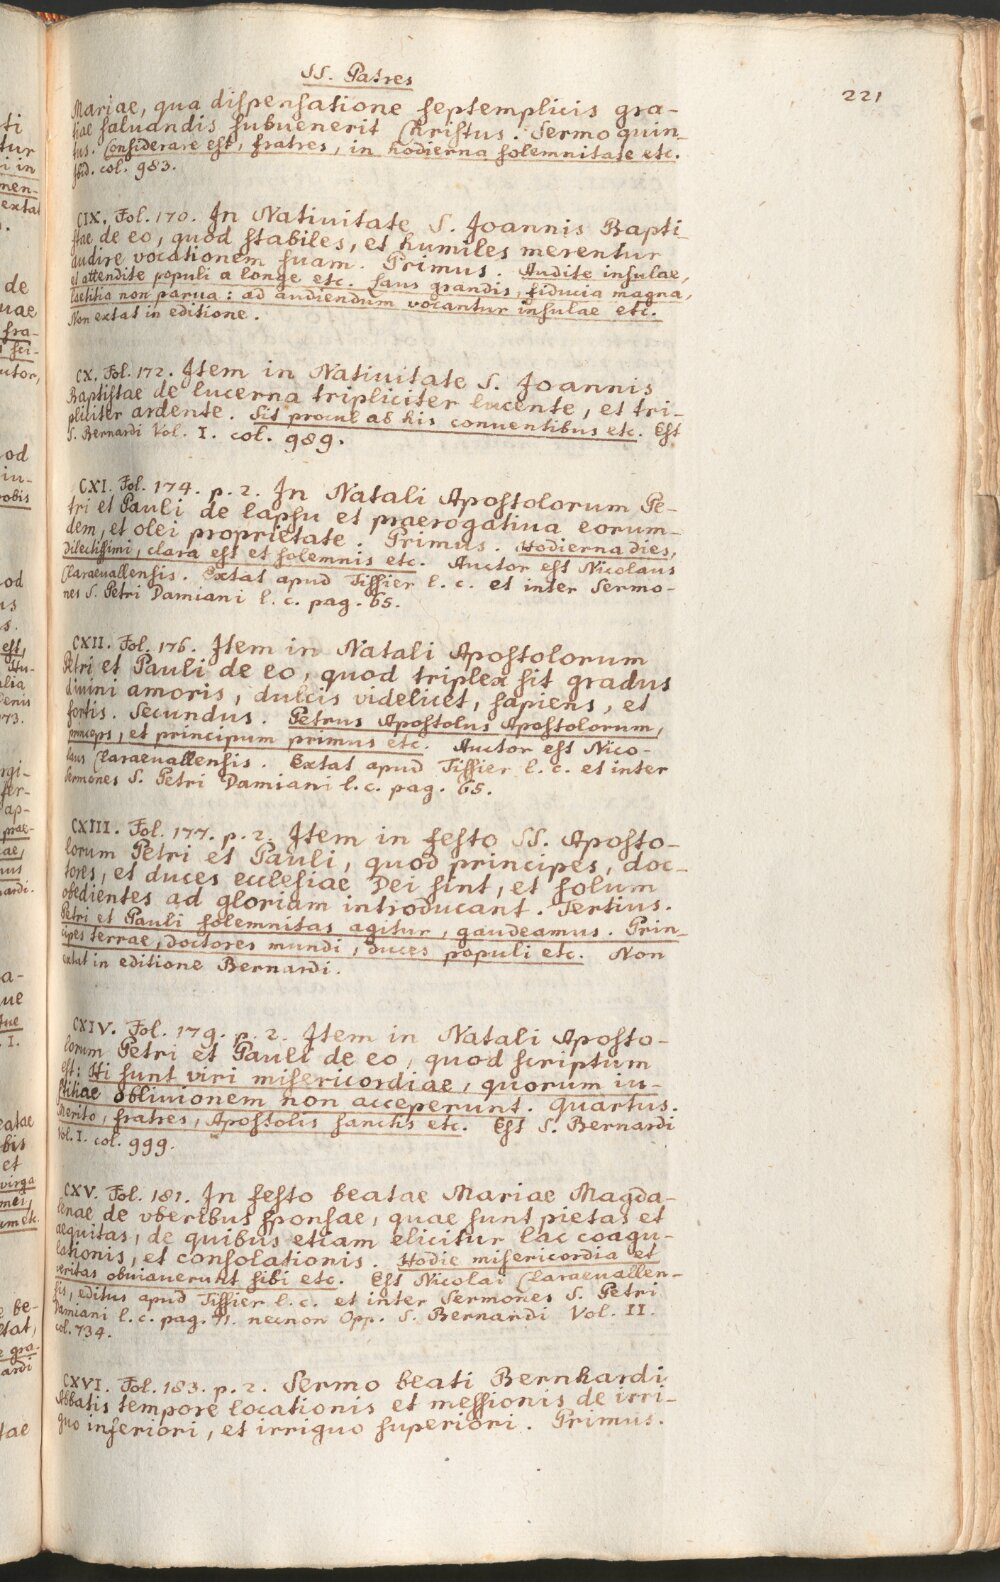 SS. Patres
221
Mariae, qua dispensatione septemplicis gra-
tiae saluandis subuenerit Christus. Sermo quin-
tus. Considerare est, fratres, in hodierna solemnitate etc.
Ibid. col. 983.
CIX. Fol. 170. In Nativitate S. Joannis Bapti-
stae de eo, quod stabiles, et humiles merentur
audire vocationem suam. Primus. Audite insulae,
et attendite populi a longe etc. Laus grandis, fiducia magna,
laetitia non parua: ad audiendum vocantur insulae etc.
Non extat in editione.
CX. Fol. 172. Item in Nativitate S. Joannis
Baptistae de lucerna tripliciter lucente, et tri-
pliciter ardente. Sit procul ab his conuentibus etc. Est
S. Bernardi Vol. I. col. 989.
CXI. Fol. 174. p. 2. In Natali Apostolorum Pe-
tri et Pauli de lapsu et praerogatiua eorum-
dem, et olei proprietate. Primus. Hodierna dies,
dilectissimi, clara est et solemnis etc. Auctor est Nicolaus
Claraeuallensis. Extat apud Tissier l. c. et inter Sermo-
nes S. Petri Damiani l. c. pag. 65.
CXII. Fol. 176. Item in Natali Apostolorum
Petri et Pauli de eo, quod triplex sit gradus
diuini amoris, dulcis videlicet, sapiens, et
fortis. Secundus. Petrus Apostolus Apostolorum,
princeps, et principum primus etc. Auctor est Nico-
laus Claraeuallensis. Extat apud Tissier l. c. et inter
Sermones S. Petri Damiani l. c. pag. 65.
CXIII. Fol. 177. p. 2. Item in festo SS. Aposto-
lorum Petri et Pauli, quod principes, doc-
tores, et duces ecclesiae Dei sint, et solum
obedientes ad gloriam introducant. Tertius.
Petri et Pauli solemnitas agitur, gaudeamus. Prin-
cipes terrae, doctores mundi, duces populi etc. Non
extat in editione Bernardi.
CXIV. Fol. 179. p. 2. Item in Natali Aposto-
lorum Petri et Pauli de eo, quod scriptum
est: Hi sunt viri misericordiae, quorum iu-
stitiae obliuionem non acceperunt. Quartus.
Merito, fratres, Apostolis sanctis etc. Est S. Bernardi
Vol. I. col. 999.
CXV. Fol. 181. In festo beatae Mariae Magda-
lenae de vberibus sponsae, quae sunt pietas et
aequitas, de quibus etiam elicitur lac coagu-
lationis, et consolationis. Hodie misericordia et
veritas obuiauerunt sibi etc. Est Nicolai Claraeuallen-
sis, editus apud Tissier l. c. et inter Sermones S. Petri
Damiani l. c. pag. 71. necnon Opp. S. Bernardi Vol. II.
col. 734.
CXVI. Fol. 183. p. 2. Sermo beati Bernhardi
Abbatis tempore locationis et messionis de irri-
guo inferiori, et irriguo superiori. Primus.